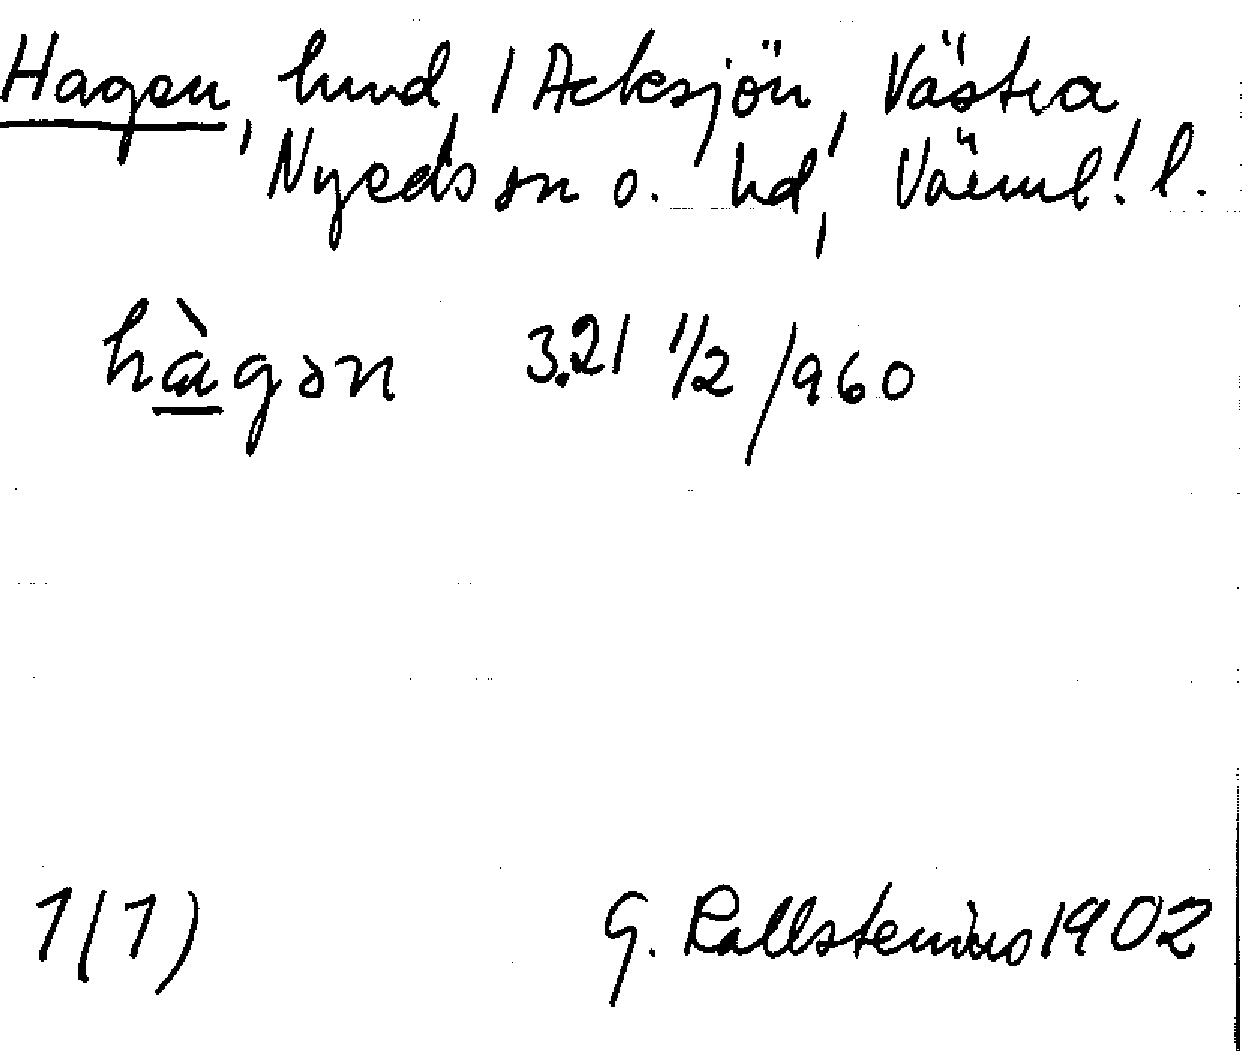 Hagen, lund, 1 Acksjön, Västra
Nyeds sn o. hd, Värml! l.
hàgən 3.21 1/2 /960
1(1) G. Kallstenius 1902